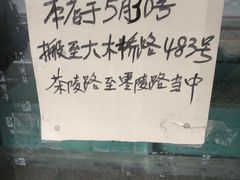 本店于5月30号
搬至大木桥路483号
茶陵路至零陵路当中